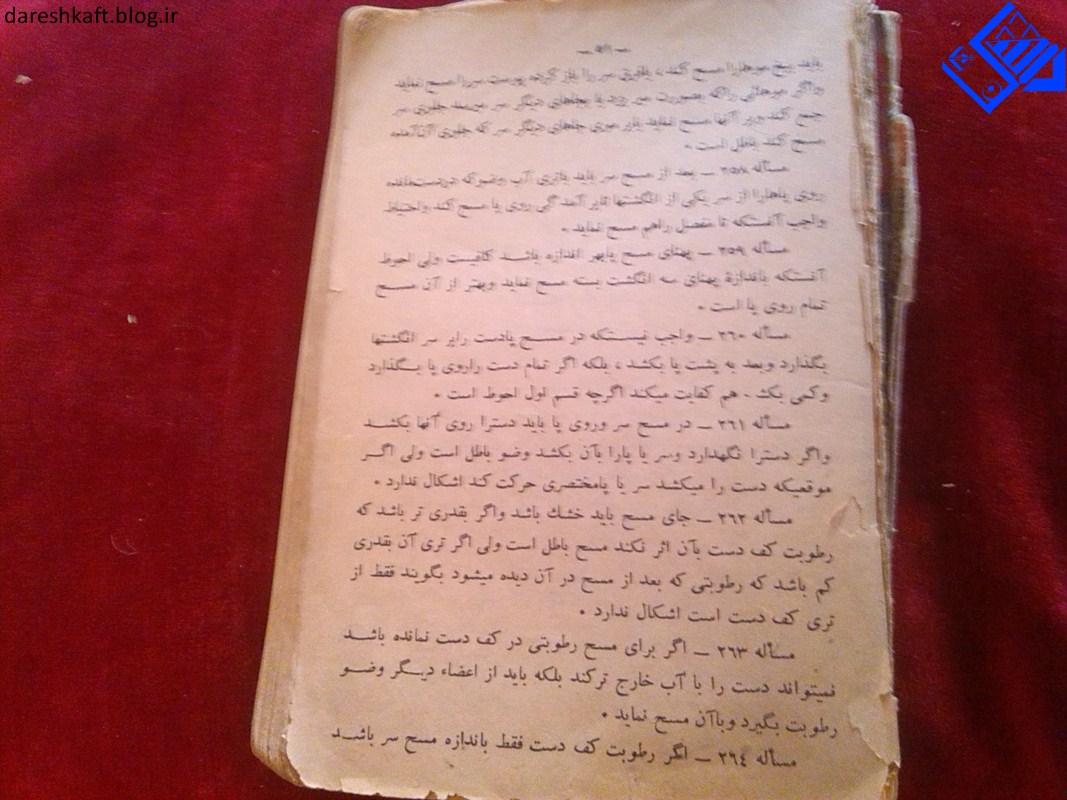 dareshkaft.blog.ir
باید بیخ موهارا مسح کند، یافرق سر را باز کرده پوست سررا مسح نماید
واگر موهائی راکه بصورت می‌ریزد یا بجاهای دیگر سر میرسد جلوی سر
جمع کند وبر آنها مسح نماید یابر موی جاهای دیگر سر که جلوی آن‌آمده
مسح کند باطل است ۰
مسأله ۲۵۸ ــ بعد از مسح سر باید باتری آب وضو که دردست‌مانده
روی پاهارا از سر یکی از انگشتها تابر آمدگی روی پا مسح کند واحتیاط
واجب آنستکه تا مفصل راهم مسح نماید ۰
مسأله ۲۵۹ ــ پهنای مسح پابهر اندازه باشد کافیست ولی احوط
آنستکه باندازهٔ پهنای سه انگشت بسته مسح نماید وبهتر از آن مسح
تمام روی پا است ۰
مسأله ۲۶۰ ــ واجب نیستکه در مسح پادست رابر سر انگشتها
بگذارد وبعد به پشت پا بکشد، بلکه اگر تمام دست راروی پا بگذارد
وکمی بکشد هم کفایت میکند اگرچه قسم اول احوط است ۰
مسأله ۲۶۱ ــ در مسح سر وروی پا باید دسترا روی آنها بکشد
واگر دسترا نگهدارد وسر یا پارا بآن بکشد وضو باطل است ولی اگر
موقعیکه دست را میکشد سر یا پامختصری حرکت کند اشکال ندارد ۰
مسأله ۲۶۲ ــ جای مسح باید خشك باشد واگر بقدری تر باشد که
رطوبت کف دست بآن اثر نکند مسح باطل است ولی اگر تری آن بقدری
کم باشد که رطوبتی که بعد از مسح در آن دیده میشود بگویند فقط از
تری کف دست است اشکال ندارد ۰
مسأله ۲۶۳ ــ اگر برای مسح رطوبتی در کف دست نمانده باشد
نمیتواند دست را با آب خارج ترکند بلکه باید از اعضاء دیگر وضو
رطوبت بگیرد وباآن مسح نماید ۰
مسأله ۲۶٤ ــ اگر رطوبت کف دست فقط باندازه مسح سر باشد